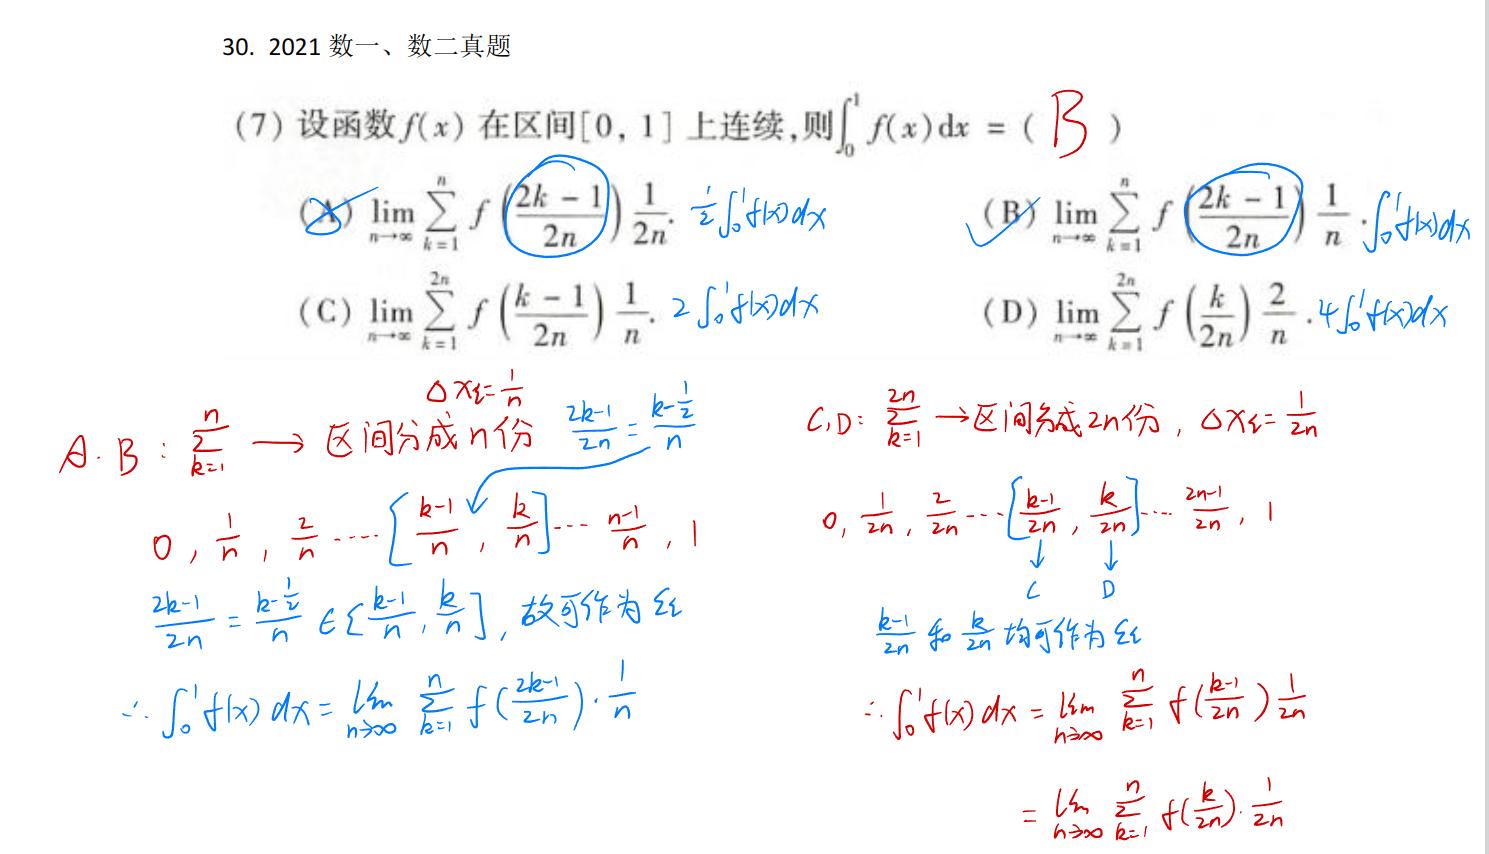 30. 2021 数一、数二真题
(7) 设函数 f(x) 在区间[0, 1] 上连续,则∫₀¹ f(x)dx = ( B )
(A) lim_{n→∞} ∑_{k=1}^{n} f((2k - 1)/(2n)) 1/(2n). ½∫₀¹f(x)dx
(B) lim_{n→∞} ∑_{k=1}^{n} f((2k - 1)/(2n)) 1/n. ∫₀¹f(x)dx
(C) lim_{n→∞} ∑_{k=1}^{2n} f((k - 1)/(2n)) 1/n. 2∫₀¹f(x)dx
(D) lim_{n→∞} ∑_{k=1}^{2n} f(k/(2n)) 2/n. 4∫₀¹f(x)dx
A. B : ∑_{k=1}^{n} → 区间分成n份 Δxᵢ=1/n (2k-1)/(2n) = (k-½)/n
0, 1/n, 2/n ····· [(k-1)/n, k/n] ··· (n-1)/n, 1
(2k-1)/(2n) = (k-½)/n ∈ [(k-1)/n, k/n], 故可作为 ξᵢ
∴ ∫₀¹f(x)dx = lim_{n→∞} ∑_{k=1}^{n} f((2k-1)/(2n))·1/n
C,D: ∑_{k=1}^{2n} → 区间分成2n份, Δxᵢ=1/(2n)
0, 1/(2n), 2/(2n) ··· [(k-1)/(2n), k/(2n)] ··· (2n-1)/(2n), 1
C D
(k-1)/(2n) 和 k/(2n) 均可作为 ξᵢ
∴ ∫₀¹f(x)dx = lim_{n→∞} ∑_{k=1}^{n} f((k-1)/(2n)) 1/(2n)
= lim_{n→∞} ∑_{k=1}^{n} f(k/(2n))·1/(2n)